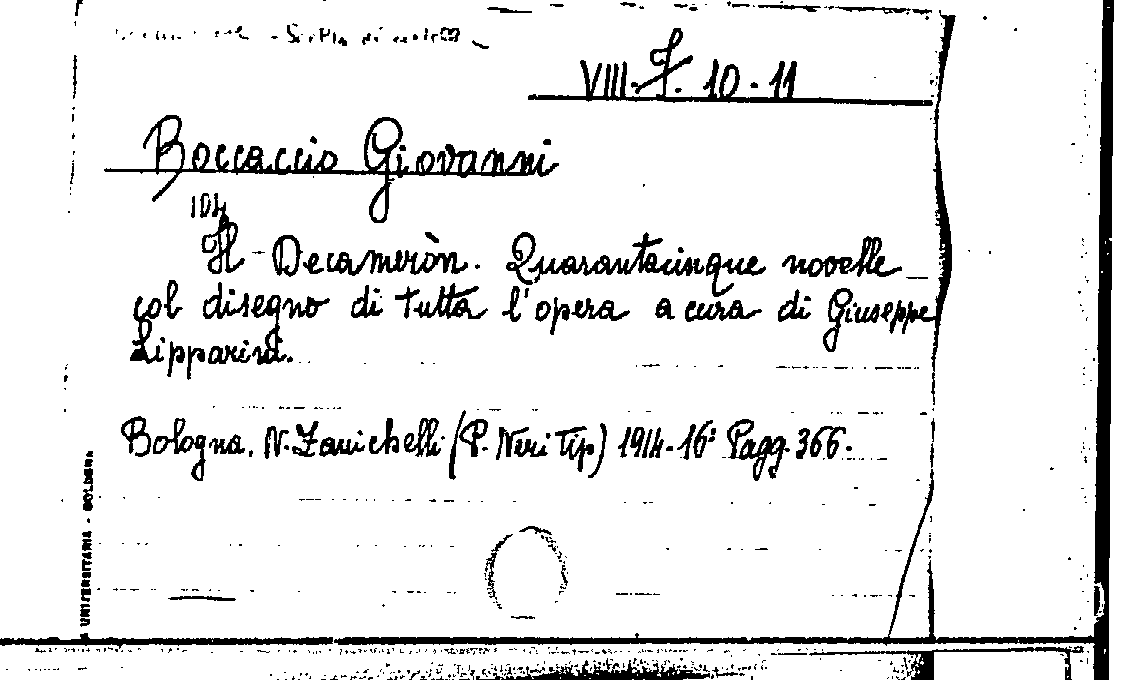 VIII. J. 10 - 11
Boccaccio Giovanni
104
Il Decameròn. Quarantacinque novelle
col disegno di tutta l'opera a cura di Giuseppe
Lipparini.
Bologna, N. Zanichelli (P. Neri Tip) 1914 - 16º Pagg. 366.
UNIVERSITARIA - BOLOGNA